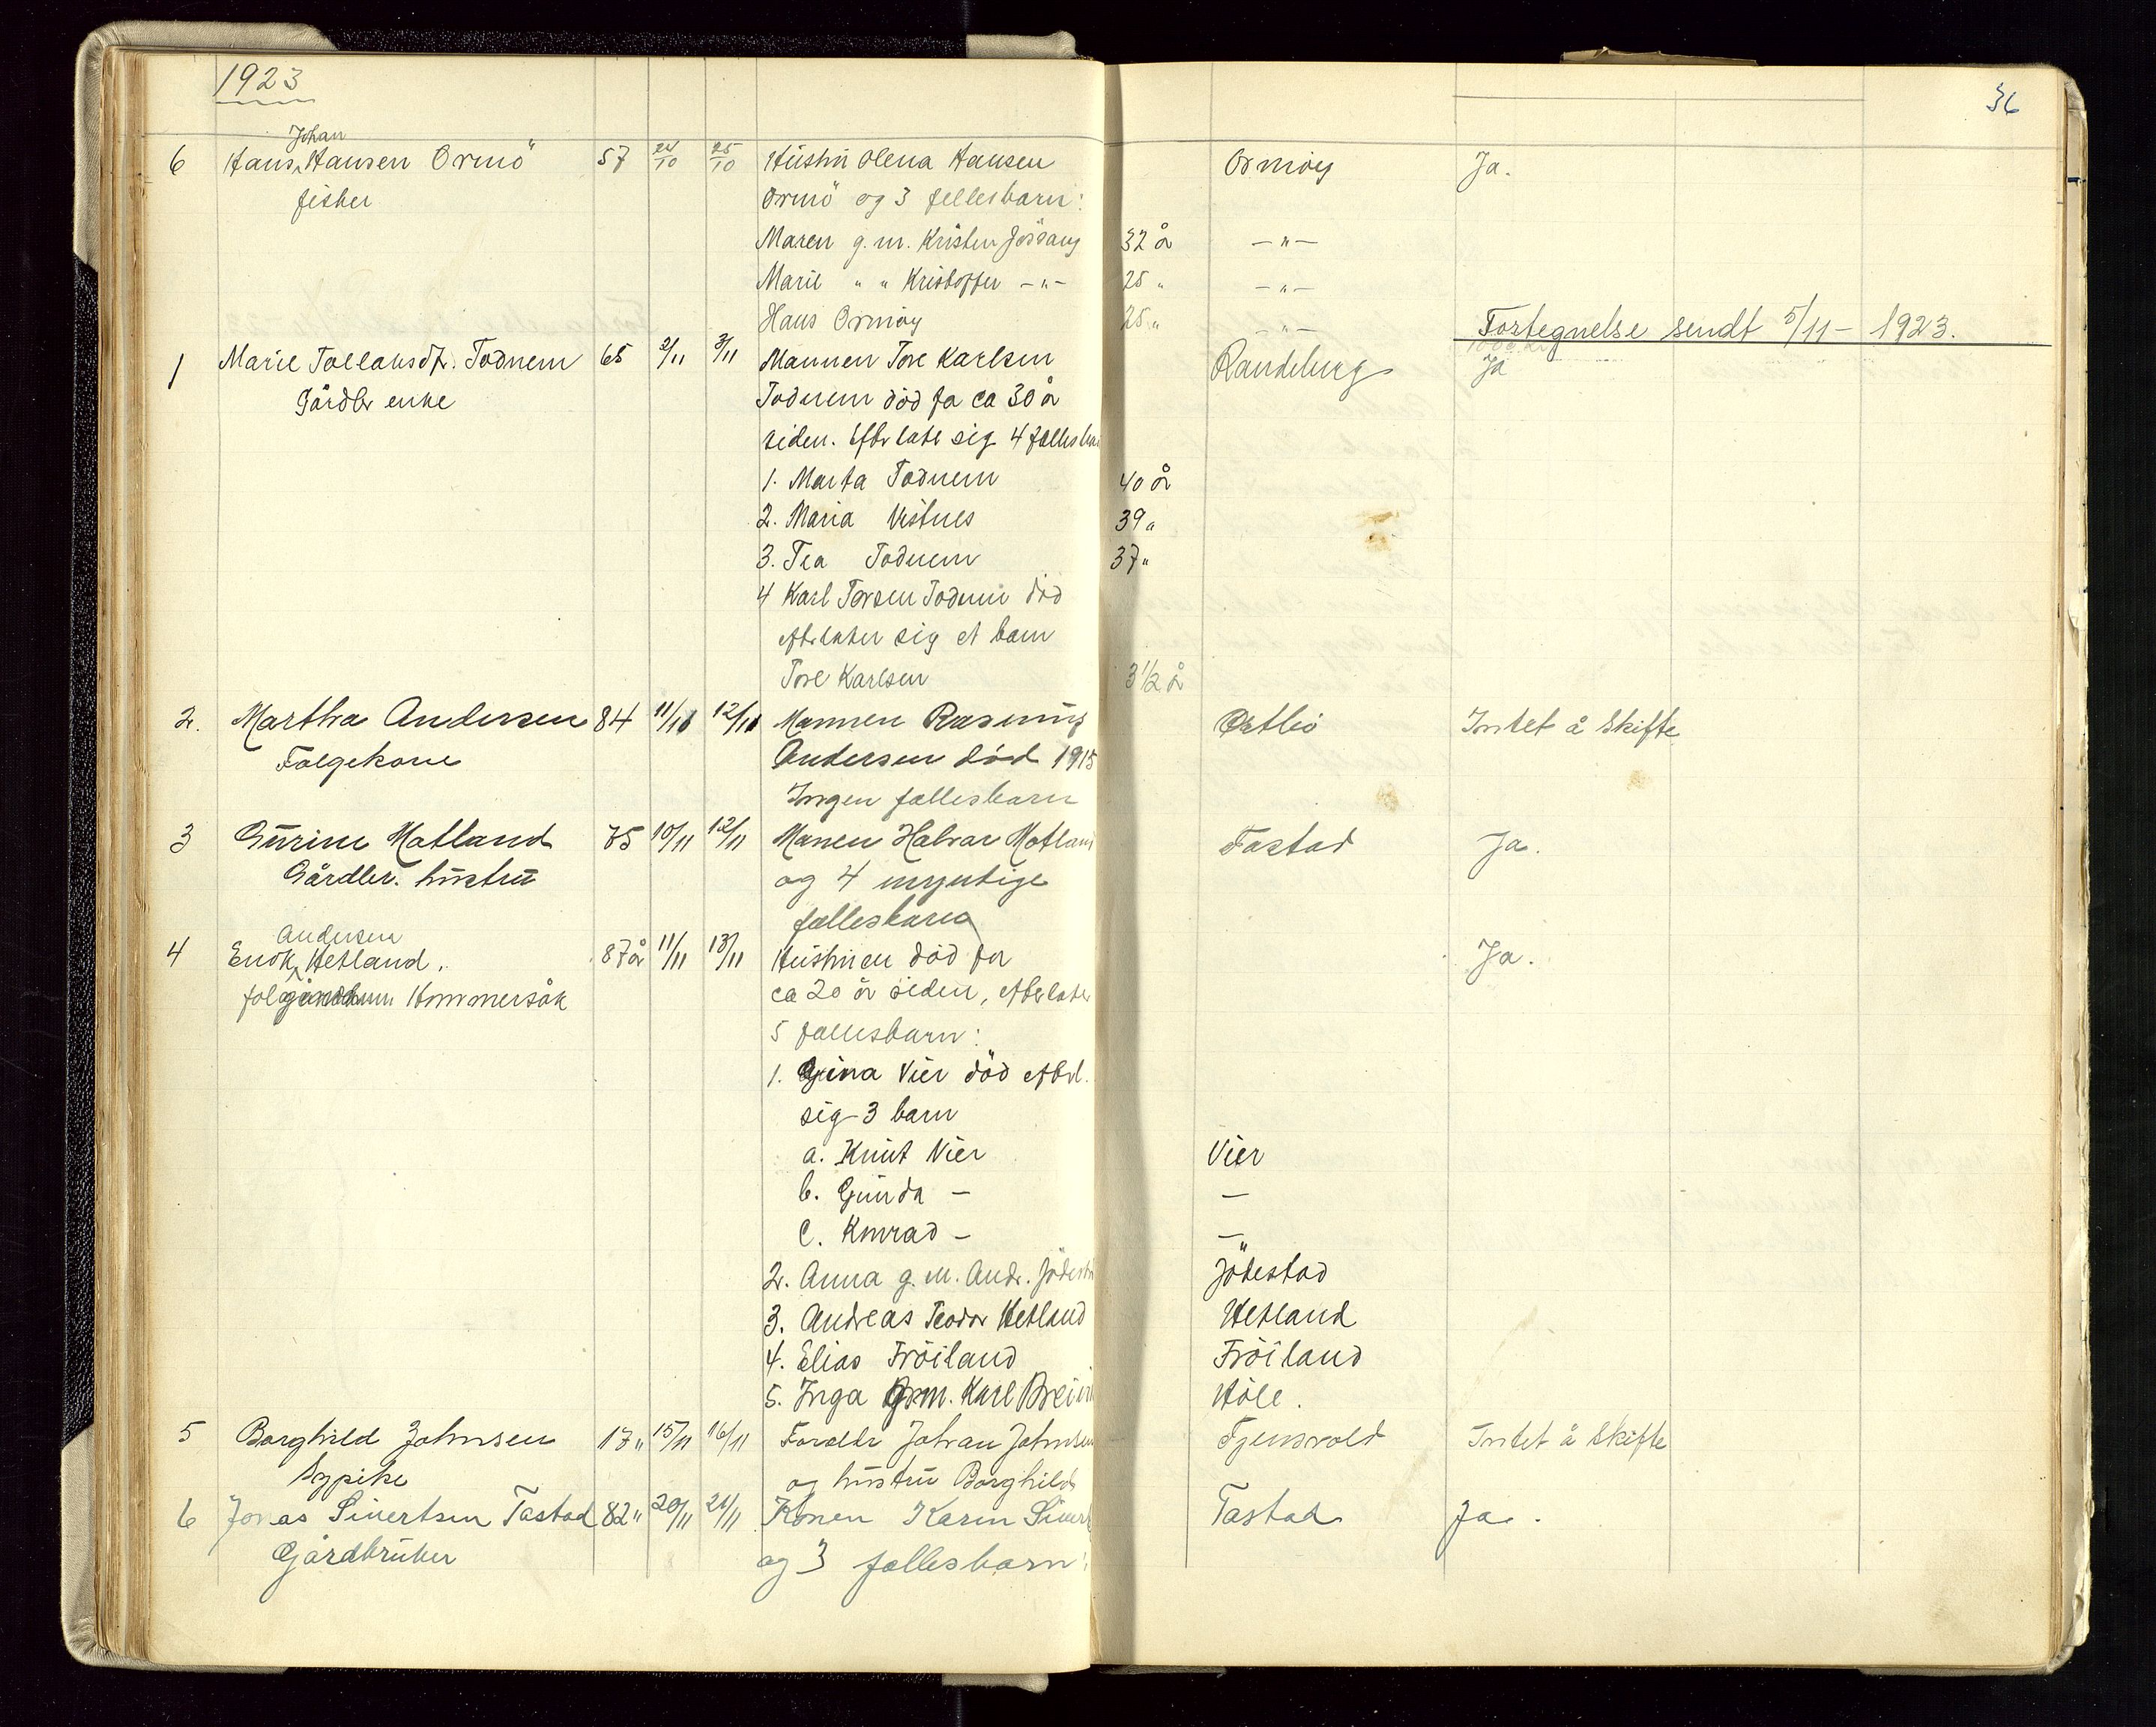 1923
36
Johan
6 Hans Hansen Ormö 57 24/10 25/10 Hustru Olena Hansen Ormöy Ja.
fisker Ormö og 3 fellesbarn:
Maren g. m. Kristen Jösang 32 år —"—
Marie " " Kristoffer —"— 25 " —"—
Hans Ormöy 25 " —"—
Fortegnelse sendt 5/11 – 1923.
1 Marie Tollaksdtr. Todnem 65 2/11 3/11 Mannen Tore Karlsen Randeberg Ja
Gårdbr enke Todnem död for ca 30 år
siden. Efterlate sig 4 felles
1. Marta Todnem 40 år
2. Maria Vistnes 39 "
3. Tea Todnem 37 "
4 Karl Torsen Todnem död
efterlater sig et barn
Tore Karlsen 3 1/2 år
2. Martha Andersen 84 11/11 12/11 Mannen Rasmus Intet å skifte
Folgekone Andersen död 1915
Ingen fællesbarn
3 Gurine Matland 75 10/11 12/11 Manen Halvar Matland Tastad Ja.
Gårdbr. hustru og 4 myntige
fællesbarn
Andersen
4 Enok Hetland. 87 år 11/11 13/11 Hustruen död for Ja.
Hommersåk ca 20 år siden, efterlater
5 fællesbarn:
1. Gina Vier död efterl.
sig 3 barn
a. Knut Vier Vier
b. Gunda — —
c. Konrad — —
2. Anna g. m. Andr. Jödestad
3. Andreas Teodor Hetland Hetland
4. Elias Fröiland Fröiland
5. Inga g. m. Karl Höle.
5 Borghild Johnsen 17 " 15/11 16/11 Foreldr Johan Johnsen Tjensvold Intet å skifte
Sypike og hustru Borghild
6 Jonas Sivertsen Tastad 82 " 20/11 21/11 Konen Karen Sivert Tastad Ja.
Gårdbruker og 3 fellesbarn: